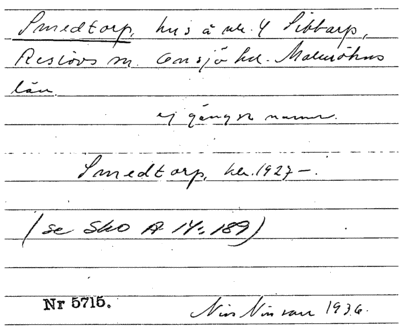 Smedtorp, hus å nr. 4 Sibbarp,
Reslövs sn. Onsjö hd. Malmöhus
län.
ej gängse namn.
Smedtorp, kbr. 1927–.
(se Sko A 14:189)
Nr 5715.
1936.